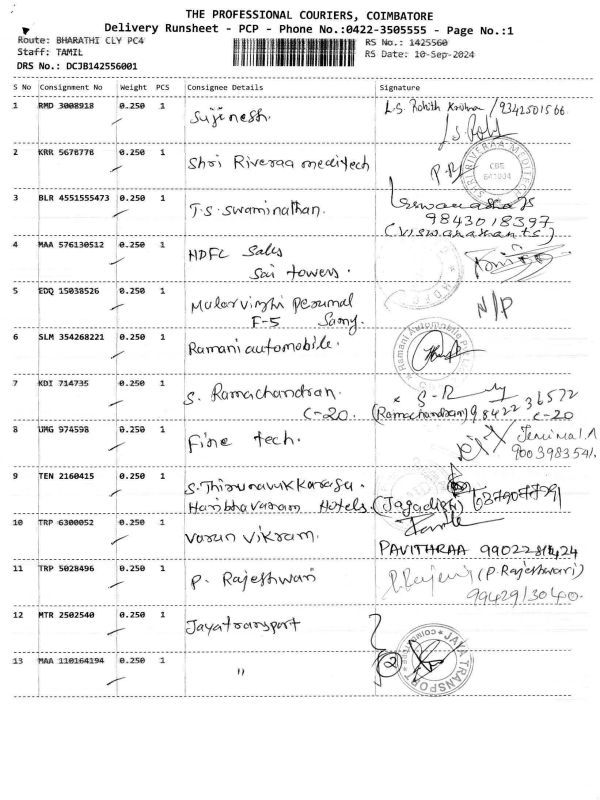 THE PROFESSIONAL COURIERS, COIMBATORE
Delivery Runsheet - PCP - Phone No.:0422-3505555 - Page No.:1
Route: BHARATHI CLY PC4 RS No.: 1425560
Staff: TAMIL RS Date: 10-Sep-2024
DRS No.: DCJB142556001
S No Consignment No Weight PCS Consignee Details Signature
1 RMD 3008918 0.250 1 Sujinesh. L.S. Rohith Krishna / 9342501566
2 KRR 5678778 0.250 1 Shri Riveraa meditech
SHRI RIVERAA MEDITECH CBE 641004
3 BLR 4551555473 0.250 1 T.S. Swaminathan.
9843018397
(VISWANAHANTS)
4 MAA 576130512 0.250 1 HDFC Sales
Sai towers.
5 EDQ 15038526 0.250 1 Malarvizhi Perumal N/P
F-5 Samy.
6 SLM 354268221 0.250 1 Ramani automobile.
Ramani Automobile
7 KDI 714735 0.250 1 S. Ramachandran.
C-20. (Ramachandran) 98422 36572 C-20
8 UMG 974598 0.250 1 Fine tech.
9003983541
9 TEN 2160415 0.250 1 S. Thirunavukkarasu.
Haribhavanam Hotels. (Jagadish) 6379077791
10 TRP 6300052 0.250 1 Varun Vikram.
PAVITHRAA
11 TRP 5028496 0.250 1 P. Rajeshwari (P. Rajeshwari)
9942913040
12 MTR 2502540 0.250 1 Jayatransport
JAYA TRANSPORT
2
13 MAA 110164194 0.250 1 "